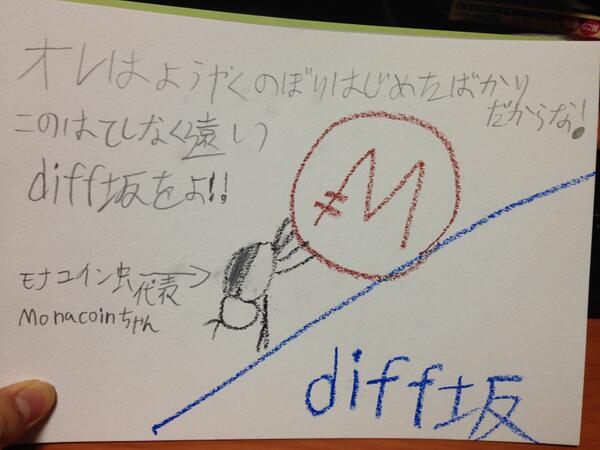 オレはようやくのぼりはじめたばかり
だからな!
このはてしなく遠い
diff坂をよ!!
M
モナコイン虫代表
Monacoinちゃん
diff坂